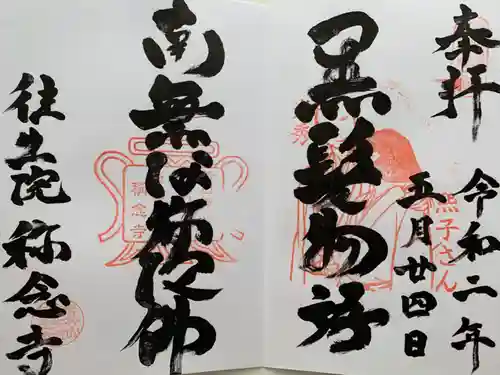 奉拝
令和二年
五月廿四日
黒髪物語
熙子さん
南無阿弥陀仏
稱念寺
往生院 称念寺